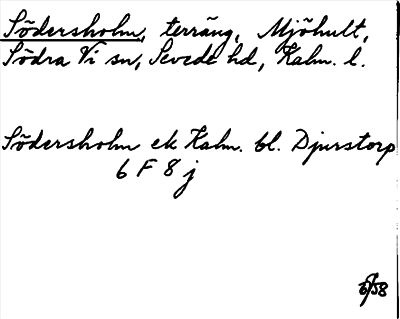 Södersholm, terräng, Mjöhult,
Södra Vi sn, Sevede hd, Kalm. l.
Södersholm ek Kalm. bl. Djurstorp
6 F 8 j